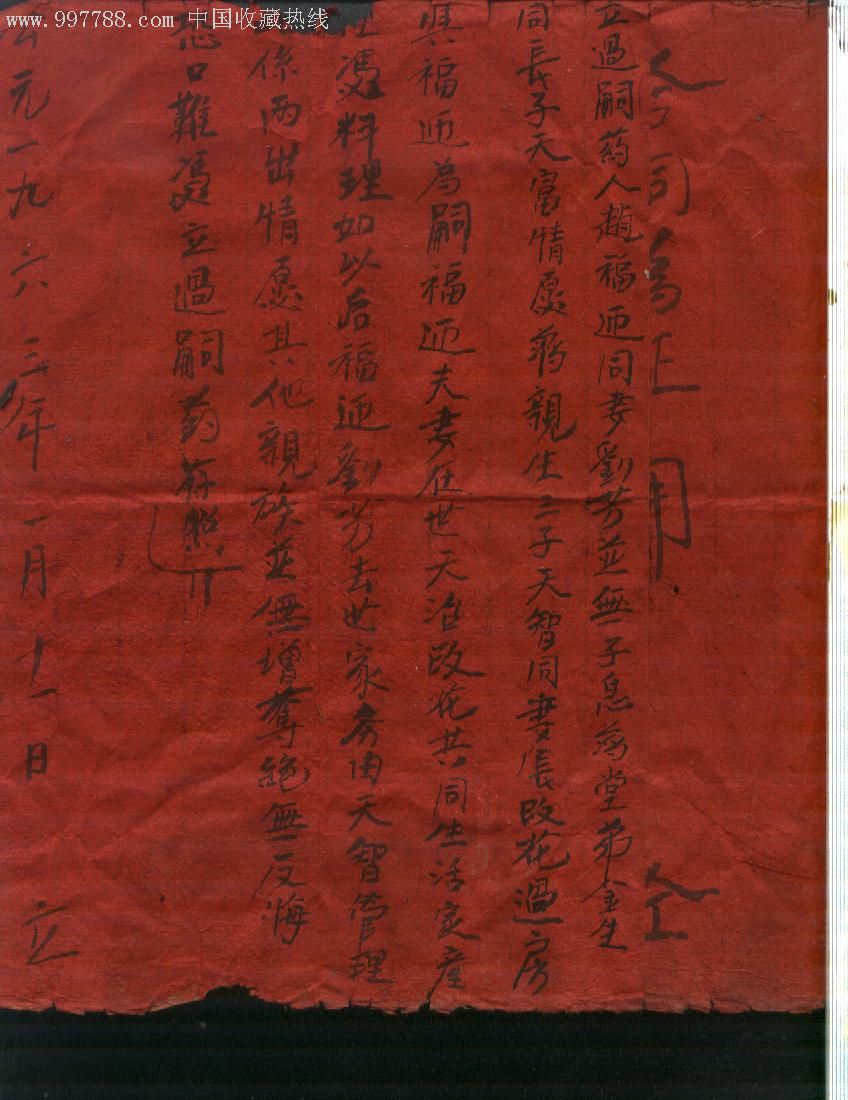 www.997788.com 中国收藏热线
合同為正用
立過嗣药人趙福迊同妻劉芳並無子息蒋堂弟金生
同長子天富情愿蒋親生三子天智同妻張改花過房
與福迊為嗣福迊夫妻在世天治改花共同生活家産
憑料理如以后福迊劉芳去世家务由天智管理
係両出情愿其他親族並無增奪絶無反悔
恐口難憑立過嗣药存照
公元一九六三年一月十一日 立